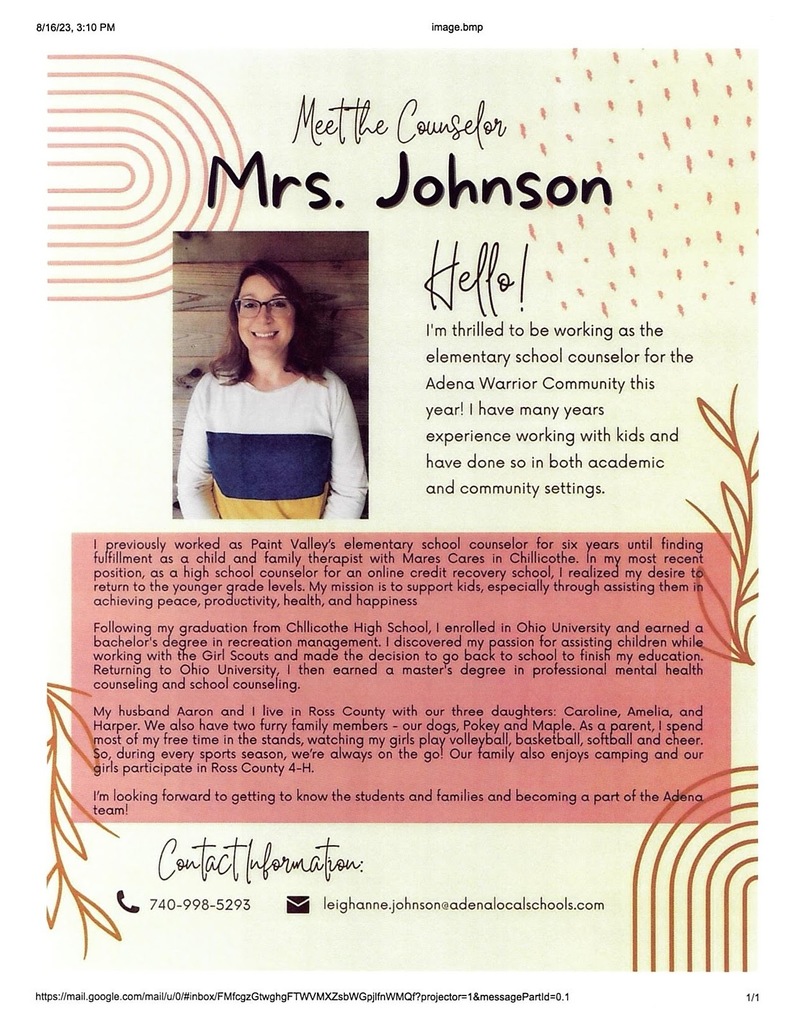 8/16/23, 3:10 PM
image.bmp
Meet the Counselor
Mrs. Johnson
Hello!
I'm thrilled to be working as the
elementary school counselor for the
Adena Warrior Community this
year! I have many years
experience working with kids and
have done so in both academic
and community settings.
I previously worked as Paint Valley's elementary school counselor for six years until finding
fulfillment as a child and family therapist with Mares Cares in Chillicothe. In my most recent
position, as a high school counselor for an online credit recovery school, I realized my desire to
return to the younger grade levels. My mission is to support kids, especially through assisting them in
achieving peace, productivity, health, and happiness
Following my graduation from Chllicothe High School, I enrolled in Ohio University and earned a
bachelor's degree in recreation management. I discovered my passion for assisting children while
working with the Girl Scouts and made the decision to go back to school to finish my education.
Returning to Ohio University, I then earned a master's degree in professional mental health
counseling and school counseling.
My husband Aaron and I live in Ross County with our three daughters: Caroline, Amelia, and
Harper. We also have two furry family members - our dogs, Pokey and Maple. As a parent, I spend
most of my free time in the stands, watching my girls play volleyball, basketball, softball and cheer.
So, during every sports season, we're always on the go! Our family also enjoys camping and our
girls participate in Ross County 4-H.
I'm looking forward to getting to know the students and families and becoming a part of the Adena
team!
Contact Information:
740-998-5293
leighanne.johnson@adenalocalschools.com
https://mail.google.com/mail/u/0/#inbox/FMfcgzGtwghgFTWVMXZsbWGpjlfnWMQf?projector=1&messagePartId=0.1
1/1